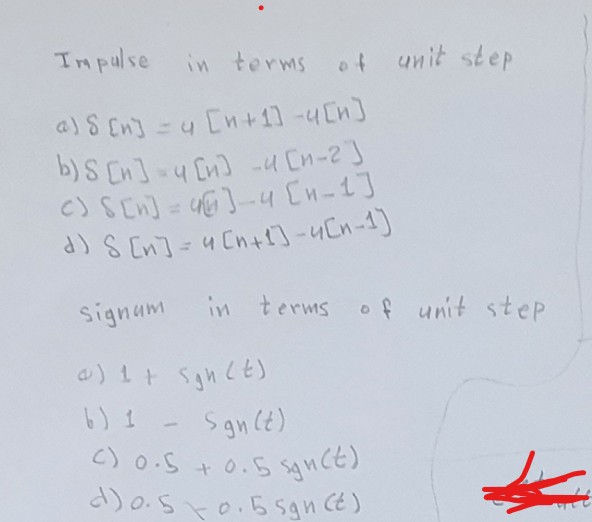 Impulse in terms of unit step
a) δ[n] = u[n+1] - u[n]
b) δ[n] = u[n] - u[n-2]
c) δ[n] = u[n] - u[n-1]
d) δ[n] = u[n+1] - u[n-1]
signum in terms of unit step
a) 1 + sgn(t)
b) 1 - sgn(t)
c) 0.5 + 0.5 sgn(t)
d) 0.5 - 0.5 sgn(t)